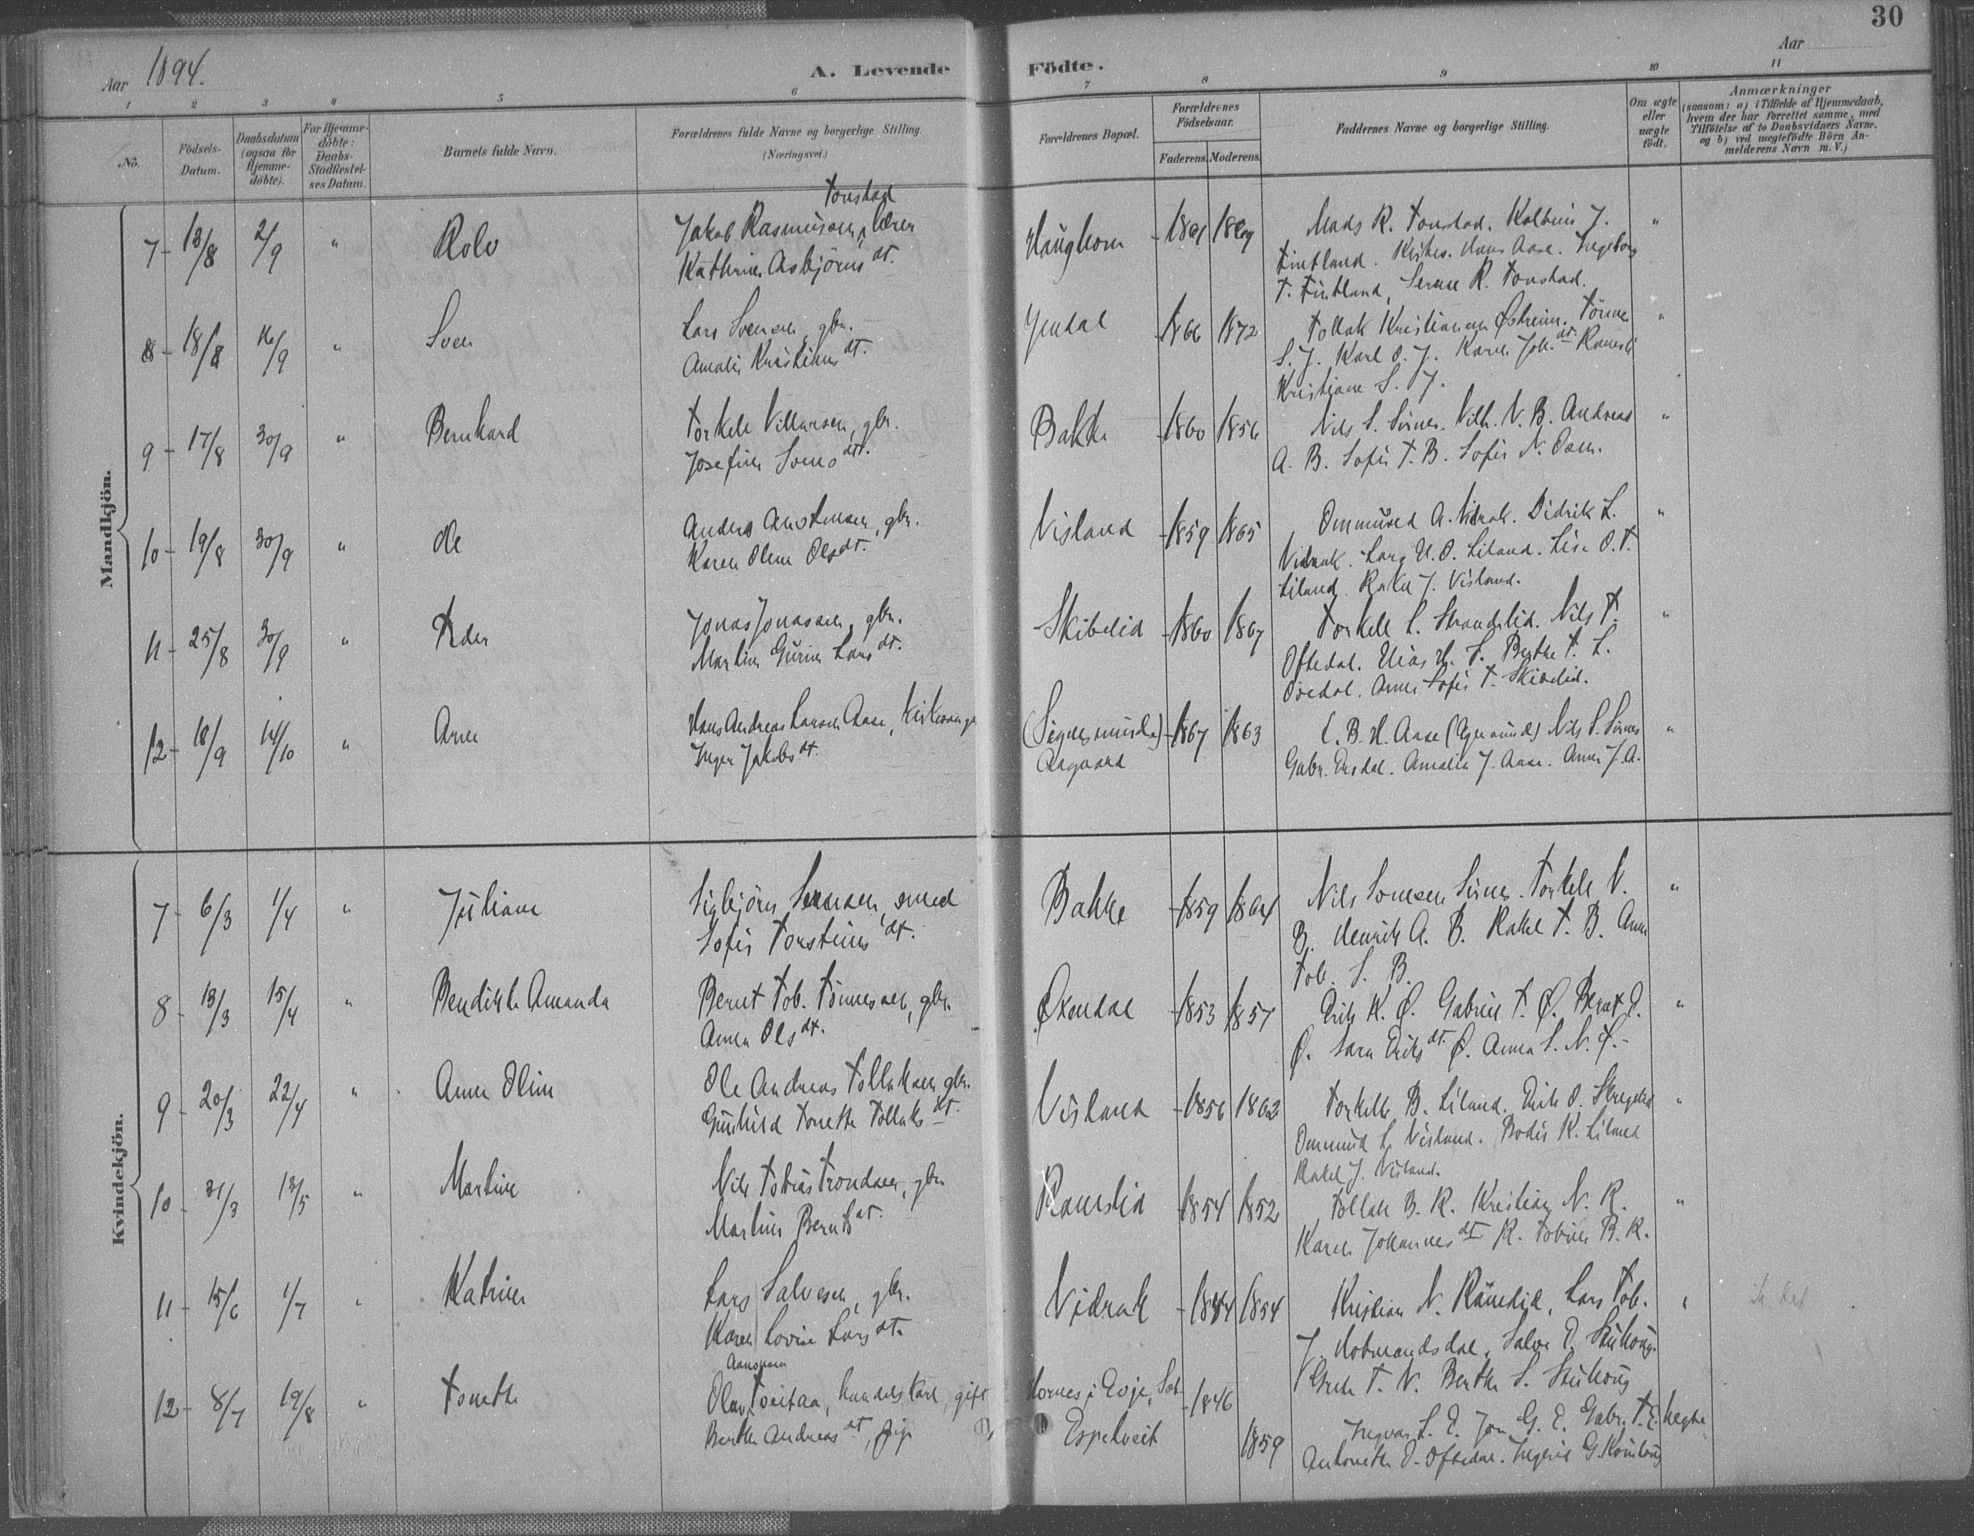 30
Aar 1894.
A. Levende
Födte.
Aar
1 2 3 4 5 6 7 8 9 10 11
No.
Födsels-Datum.
Daabsdatum (ogsaa for Hjemme-döbte).
For Hjemme-döbte: Daabs-Stadfæstel-ses Datum.
Barnets fulde Navn.
Forældrenes fulde Navne og borgerlige Stilling.
(Næringsvei.)
Forældrenes Bopæl.
Forældrenes Födselsaar.
Faderens. Moderens.
Faddernes Navne og borgerlige Stilling.
Om ægte eller uægte födt.
Anmærkninger
(saasom: a) i Tilfælde af Hjemmedaab,
hvem der har forrettet samme, med
Tilföielse af to Daabsvidners Navne,
og b) ved uægtefödte Börn An-
melderens Navn m. V.)
Mandkjön.
7 - 13/8 2/9 " Rolv
Tonstad
Jakob Rasmussen, lærer
Kathrine Asbjørns dt.
Haughom
Mads R. Tonstad. Kathrine J.
Fintland. Kirkes. Hans Aase. Ingeborg
T. Fintland, Serine R. Tonstad.
"
8 - 18/8 16/9 " Sven
Lars Svensen, gbr.
Amalie Kristians dt.
1866 1872
Tollak Kristiansen Øsheim. Tönnes
S. J. Karl O. J. Karen Joh. dt. Ramsli
Kristiane S. J.
"
9 - 17/8 30/9 " Bernhard
Torkell Villumsen, gbr.
Josefine Svens dtt.
Bakke
1860 1856
Nils S. Sirnes. Vilh. V. B. Andreas
A. B. Sofie T. B. Sofie N. Osen.
"
10 - 19/8 30/9 " Ole
Anders Anstensen, gbr.
Karen Oline Ols dt.
Visland
1859 1865
Ommund A. Vidrak. Didrik L.
Vidrak. Lars U. O. Liland. Lise O. T.
Liland. Rakel J. Visland.
"
11 - 25/8 30/9 " Peder
Jonas Jonassen, gbr.
Martine Gurine Lars dt.
Skibelid
1860 1867
Torkell L. Strandelid. Nils T.
Oftedal. Elias H. S. Berthe T. L.
Öiedal. Anne Sofie T. Skibelid.
"
12 - 18/9 14/10 " Arne
Hans Andreas Larsen Aase, kirkesanger
Inger Jakobs dt.
Aagaard
1867 1863
L. B. H. Aase Nils S. Sirnes
Gabr. Aase. Anne J. A.
"
Kvindekjön.
7 - 6/3 1/4 " Juliane
Sigbjörn Svensen, smed
Sofie Torstens dt.
Bakke
1859 1864
Nils Svensen Sirnes. Torkell V.
B. Henrik A. B. Rakel T. B. Anne
Tob. S. B.
"
8 - 13/3 15/4 " Bendikte Amanda
Bernt Tob. Tönnesen, gbr.
Anna Ols dt.
Øxendal
1853 1857
Erik K. Ø. Gabriel T. Ø. Bernt E.
Ø. Sara Eriks dt. Ø. Anna S. N. Ø.
"
9 - 20/3 22/4 " Anne Oline
Ole Andreas Tollaksen, gbr.
Gunhild Tonette Tollaks dt.
Visland
1856 1862
Torkell B. Liland. Erik O. Skregelid
Ommund L. Visland. Bodil K. Liland
Rakel J. Visland.
"
10 - 31/3 13/5 " Martine
Nils Tobias Trondsen, gbr.
Martine Bernts dt.
Ramslid
1854 1852
Tollak B. R. Kristian N. R.
Karen Johannes dt. R. Tobine B. R.
"
11 - 15/6 1/7 " Katrine
Lars Salvesen, gbr.
Karen Lovise Lars dt.
Vidrak
1844 1854
Kristian N. Ramslid, Lars Tob.
J. Salve
T. V. Berthe S.
"
12 - 8/7 19/8 " Tonette
Aanonsen
Olav handelskarl, gift
Berthe Andreas dt., pige
Hornes i Evje, Sæt.
Espetveit
1846
1859
Ingvar S. E. Jon G. E. Gabr. T. E.
Antonette O. Oftedal. Ingrid G.
uegte